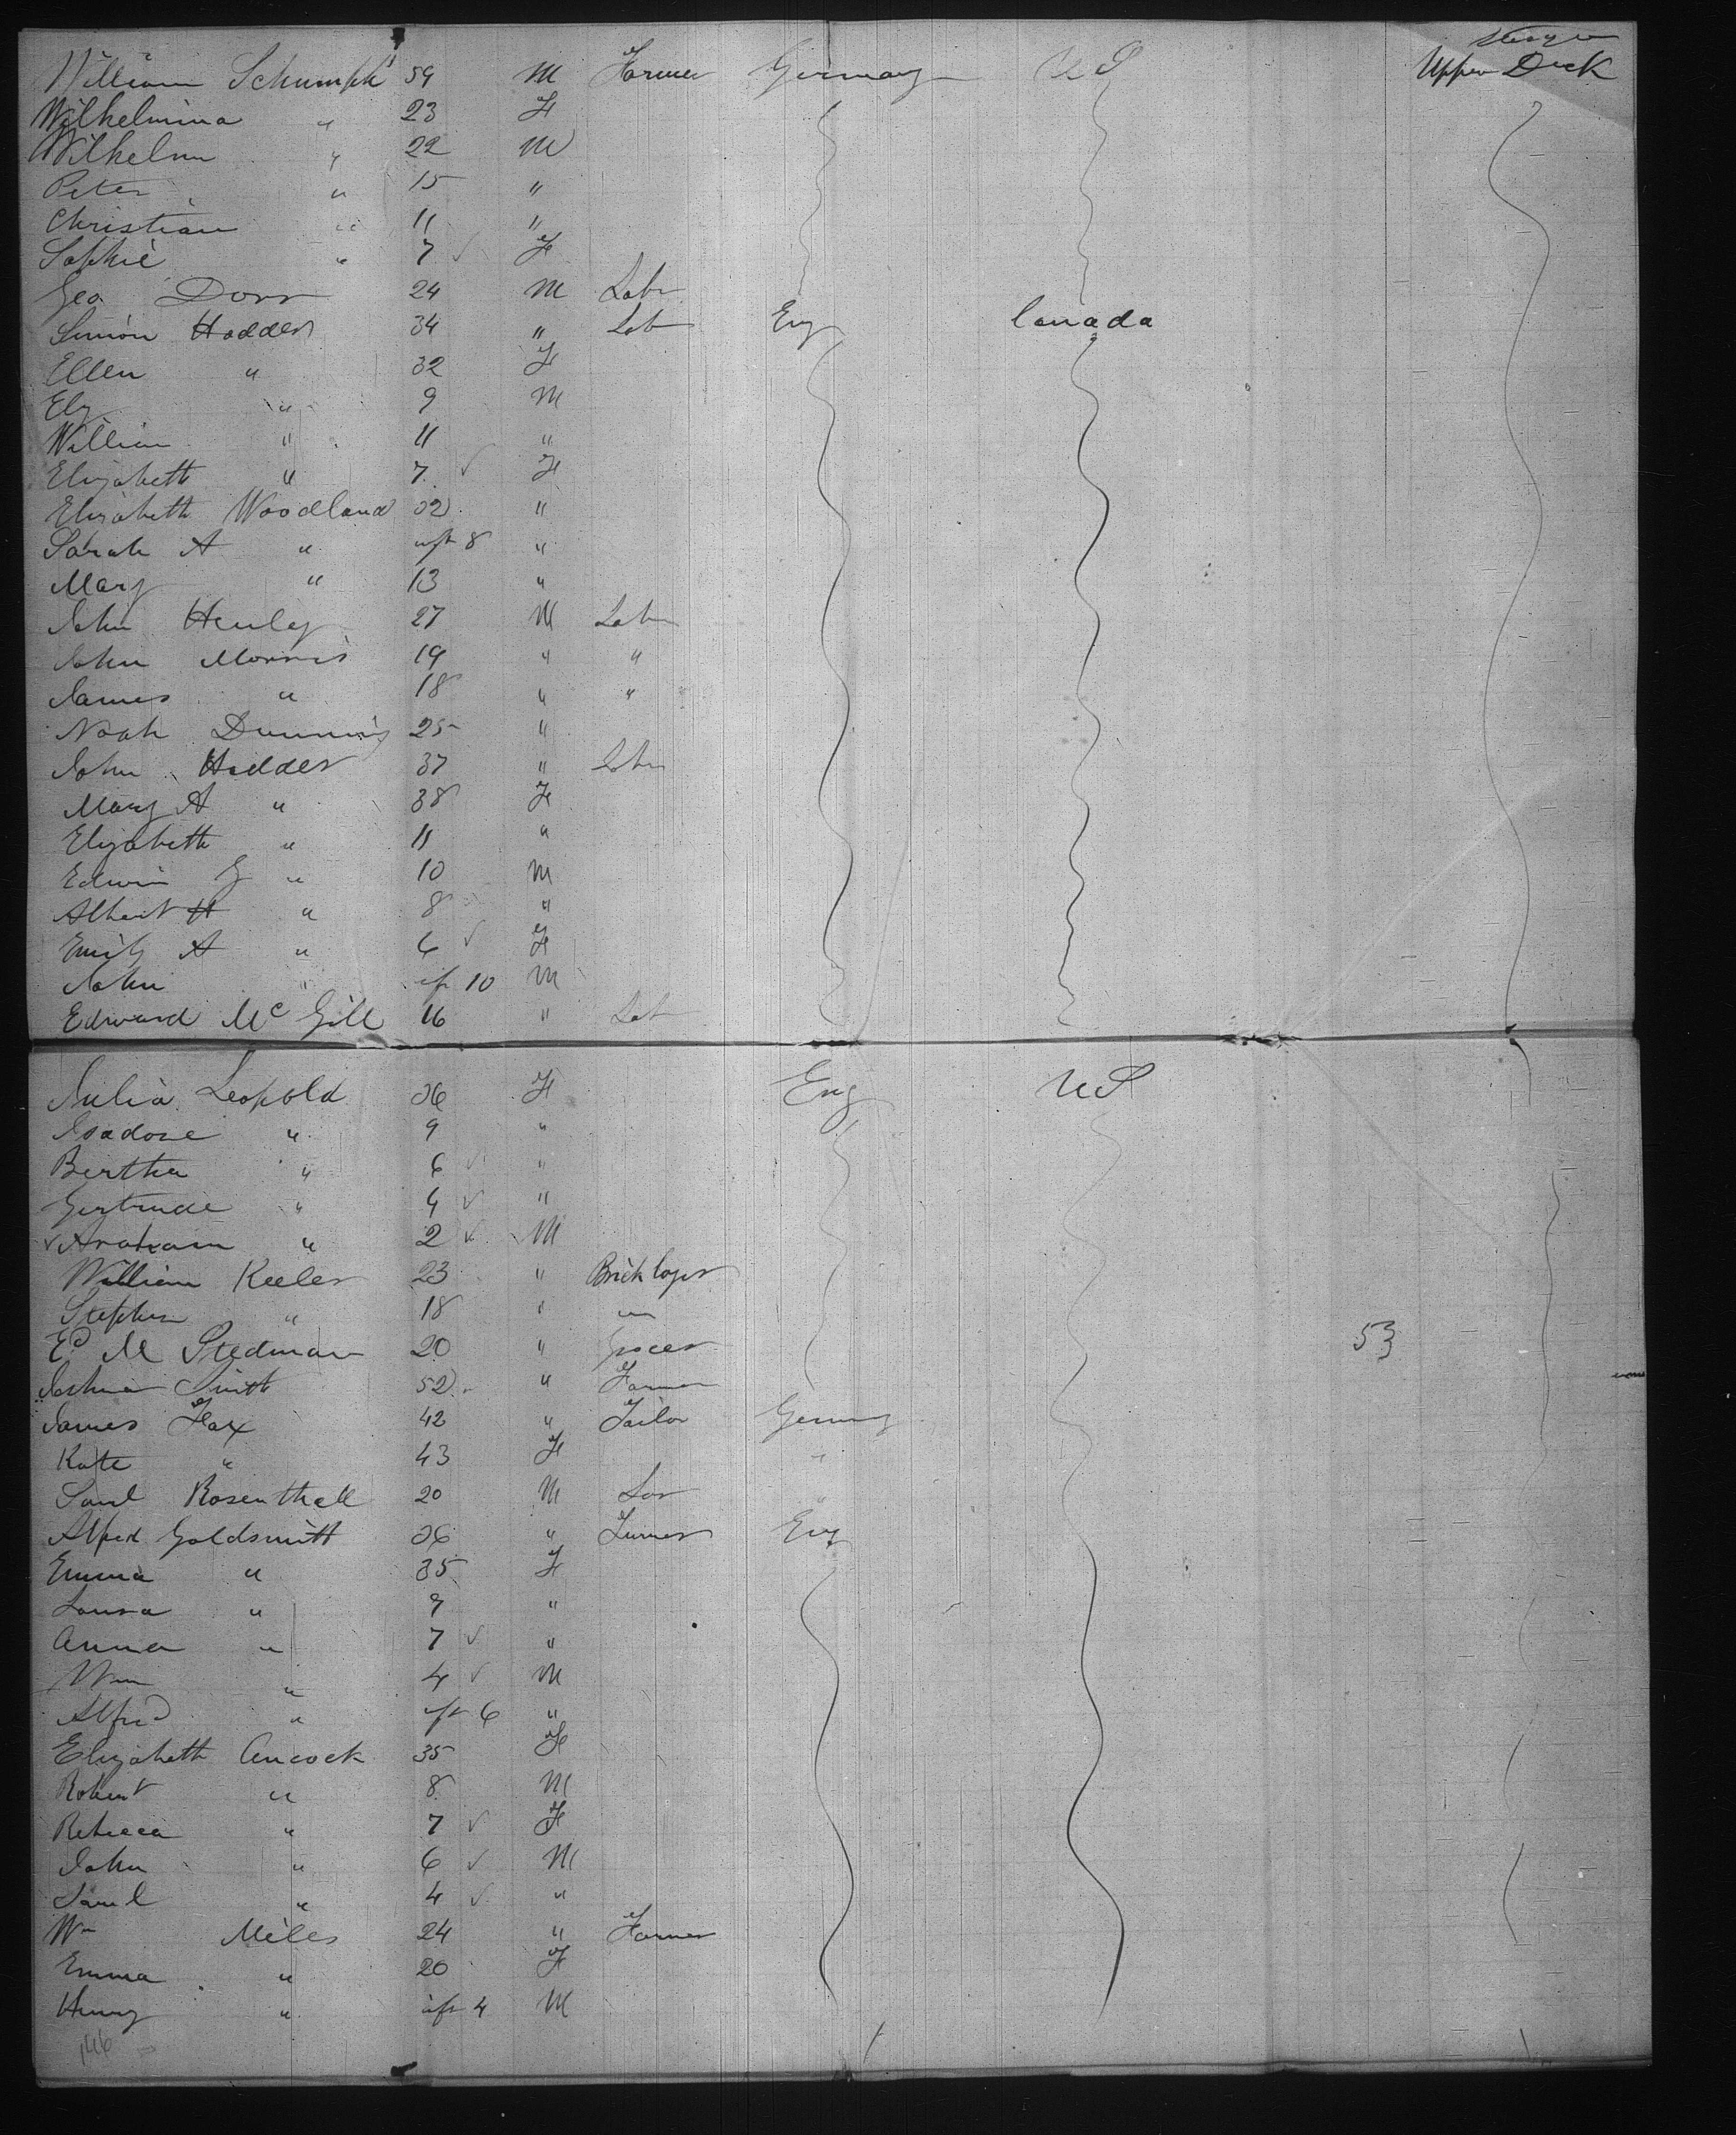 Upper Deck
William Schumpk 59 M Farmer Germany U S
Wilhelmina " 23 F
Wilhelm " 22 M
Peter " 15 "
Christian " 11 "
Sophie " 7 ✓ F
Geo Dorr 24 M Labr
Simon Hodder 34 " Lab Eng Canada
Ellen " 32 F
Ely " 9 M
William " 11 "
Elizabeth " 7 ✓ F
Elizabeth Woodland 32 "
Sarah A " inft 8 "
Mary " 13 "
John Henley 27 M Labr
John Morris 19 " "
James " 18 " "
Noah Dunning 25 "
John Hodder 37 " Labr
Mary A " 38 F
Elizabeth " 11 "
Edwin G " 10 M
Albert H " 8 "
Emily A " 6 ✓ F
John " inf 10 M
Edward Mc Gill 16 " Lab
Julia Leopold 36 F Eng U S
Isadore " 9 "
Bertha " 6 ✓ "
Gertrude " 4 ✓ "
✓ Araham " 2 ✓ M
William Keeler 23 " Bricklayer
Stephen " 18 " "
Ed M Stedman 20 " Grocer 53
Joshua Smith 52 " Farmer
James Fax 42 " Tailor Germny
Kate " 43 F "
Saml Rosenthall 20 M "
Alfred Goldsmith 36 " Eng
Emma " 35 F
Louisa " 9 "
Anna " 7 ✓ "
Wm " 4 ✓ M
Alfred " inft 6 "
Elizabeth Ancock 35 F
Robert " 8 M
Rebecca " 7 ✓ F
John " 6 ✓ M
Saml " 4 ✓ "
Wm Miles 24 " Farmer
Emma " 20 F
Henry " inft 4 M
146